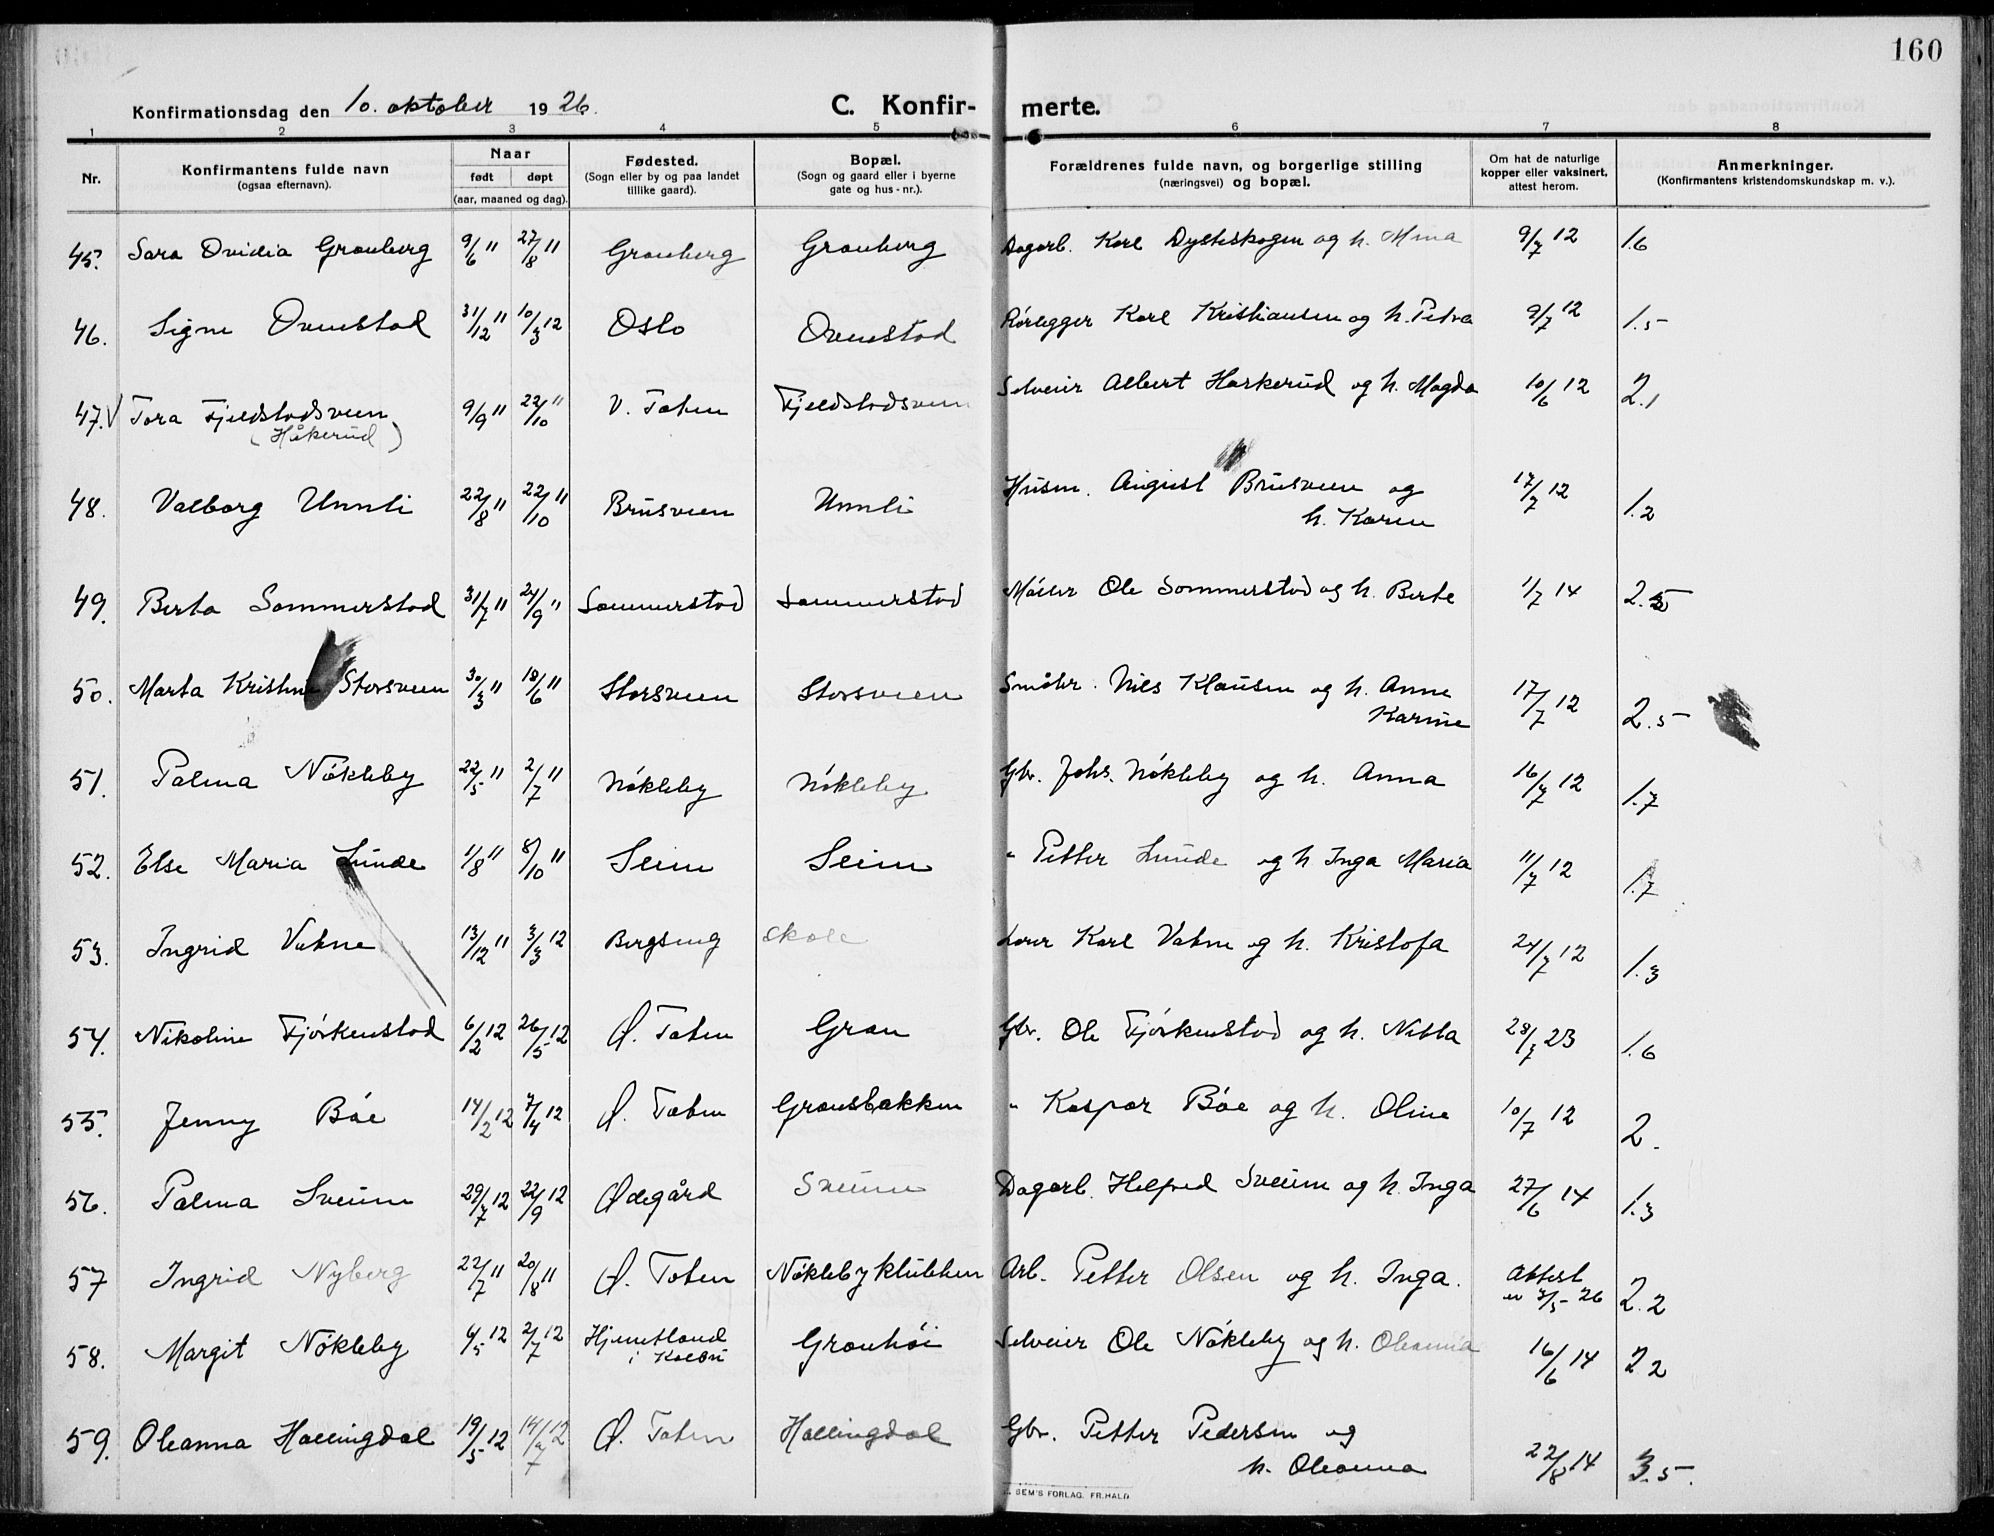 160
Konfirmationsdag den 10. oktober 1926.
C. Konfir- merte.
1 2 3 4 5 6 7 8
Nr.
Konfirmantens fulde navn
(ogsaa efternavn).
Naar
født døpt
(aar, maaned og dag).
Fødested.
(Sogn eller by og paa landet
tillike gaard).
Bopæl.
(Sogn og gaard eller i byerne
gate og hus - nr.).
Forældrenes fulde navn, og borgerlige stilling
(næringsvei) og bopæl.
Om hat de naturlige
kopper eller vaksinert,
attest herom.
Anmerkninger.
(Konfirmantens kristendomskundskap m. v.).
45. Sara Ovidia Granberg 9/6 11 27/8 11 Granberg Granberg Dagarb. Karl Dysteskogen og h. Mina 9/7 12 1.6
46. Signe Ovenstad 31/12 11 10/3 12 Oslo Ovenstad Rørlegger Karl Kristiansen og h. Petra 9/7 12 1.5
47. V Tora Fjeldstadsveen 9/9 11 22/10 11 V. Toten Fjeldstadsveen Selveier Albert Haakerud og h. Magda 10/6 12 2.1
(Håkerud)
48. Valborg Unnli 22/8 11 22/10 11 Brusveen Unnli Husm. August Brusveen og 17/7 12 1.2
h. Karen
49. Berta Sommerstad 31/7 11 24/9 11 Sommerstad Sommerstad Måler Ole Sommerstad og h. Berte 1/7 14 2.5
50. Marta Kristine Storsveen 30/3 11 18/6 11 Storsveen Storsveen Småbr. Nils Klausen og h. Anne 17/7 12 2.5
Karine
51. Palma Nøkleby 22/5 11 2/7 11 Nøkleby Nøkleby Gbr. Johs. Nøkleby og h. Anna 16/7 12 1.7
52. Else Maria Lunde 1/8 11 8/10 11 Seim Seim " Petter Lunde og h Inga Maria 11/7 12 1.7
53. Ingrid Vatne 13/12 11 3/3 12 Bergseng skole Lærer Karl Vatne og h. Kristofa 24/7 12 1.3
54. Nikoline Fjørkenstad 6/2 12 26/5 12 Ø. Toten Gran Gbr. Ole Fjørkenstad og h. Netta 28/7 23 1.6
55. Jenny Bøe 14/2 12 7/4 12 Ø. Toten Gransbakken " Kaspar Bøe og h. Oline 10/7 12 2.
56. Palma Sveum 29/7 12 22/9 12 Ødegård Sveum Dagarb. Helfred Sveum og h. Inga 27/6 14 1.3
57 Ingrid Nyberg 22/7 11 20/8 11 Ø. Toten Nøkleby klubben Arb. Petter Olsen og h. Inga. Attest 2.2
av 7/5 - 26
58. Margit Nøkleby 4/5 12 2/7 12 Hjemstland Granhøi Selveier Ole Nøkleby og h. Oleanna 16/6 14 2 2
i Kolbu
59. Oleanna Hallingdal 19/5 12 14/7 12 Ø. Toten Hallingdal Gbr. Petter Pedersen og 22/8 14 3.5.
h. Oleanna
SEM'S FORLAG. FR.HALD